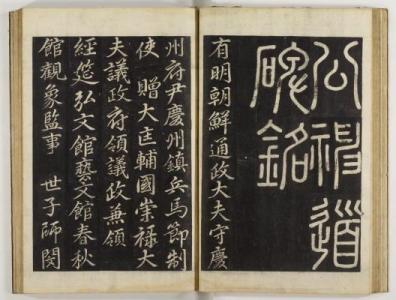 公神道
碑銘
有明朝鮮通政大夫守慶
州府尹慶州鎮兵馬節制
使 贈大匡輔國崇祿大
夫議政府領議政兼領
經筵弘文館藝文館春秋
館觀象監事 世子師閔